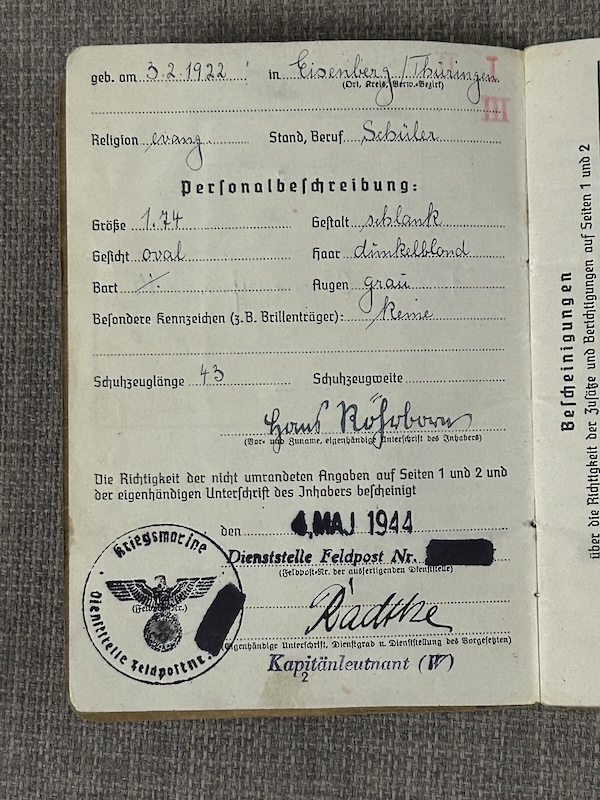 geb. am 3.2.1922 in Eisenberg / Thüringen
(Ort, Kreis, Verw.-Bezirk)
Religion evang Stand, Beruf Schüler
Personalbeschreibung:
Größe 1.74 Gestalt schlank
Gesicht oval Haar dunkelblond
Bart ./. Augen grau
Besondere Kennzeichen (z.B. Brillenträger): Keine
Schuhzeuglänge 43 Schuhzeugweite
Hans Röhrborn
(Vor- und Zuname, eigenhändige Unterschrift des Inhabers)
Die Richtigkeit der nicht umrandeten Angaben auf Seiten 1 und 2 und
der eigenhändigen Unterschrift des Inhabers bescheinigt
den 4. MAI 1944
Dienststelle Feldpost Nr.
(Feldpost-Nr. der ausfertigenden Dienststelle)
Radtke
(Eigenhändige Unterschrift, Dienstgrad u. Dienststellung des Vorgesetzten)
Kapitänleutnant (W)
2
Kriegsmarine
(Feldpost-Nr.)
Dienststelle Feldpostnr.
I
III
Bescheinigungen
über die Richtigkeit der Zusätze und Berichtigungen auf Seiten 1 und 2